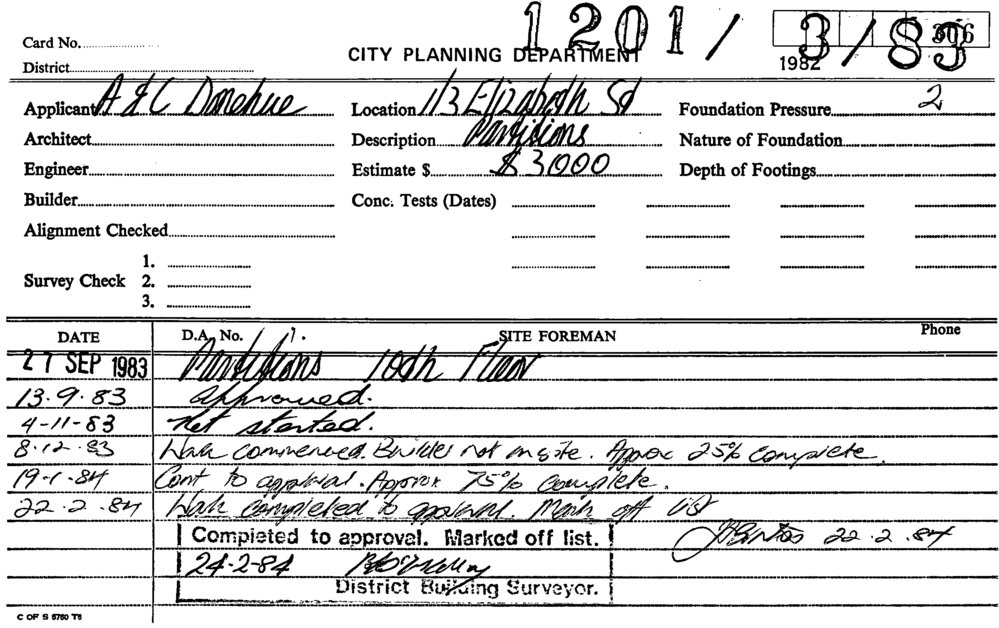 1201 / 3 / 83
Card No.
306
CITY PLANNING DEPARTMENT
1982
District
Applicant A & C Donehue Location 1/3 Elizabeth St Foundation Pressure 2
Architect Description Partitions Nature of Foundation
Engineer Estimate $ $ 3000 Depth of Footings
Builder Conc. Tests (Dates)
Alignment Checked
1.
Survey Check 2.
3.
DATE D.A. No. SITE FOREMAN Phone
27 SEP 1983 Partitions 10th Floor
13.9.83 approved.
4-11-83 Not started.
8.12.83 Work commenced. Builder not on site. Approx 25% complete.
19-1-84 Cont to approval. Approx 75% complete.
22.2.84 Work completed to approval. Mark off list
22.2.84
Completed to approval. Marked off list.
24-2-84
District Building Surveyor.
C OF S 5760 T6